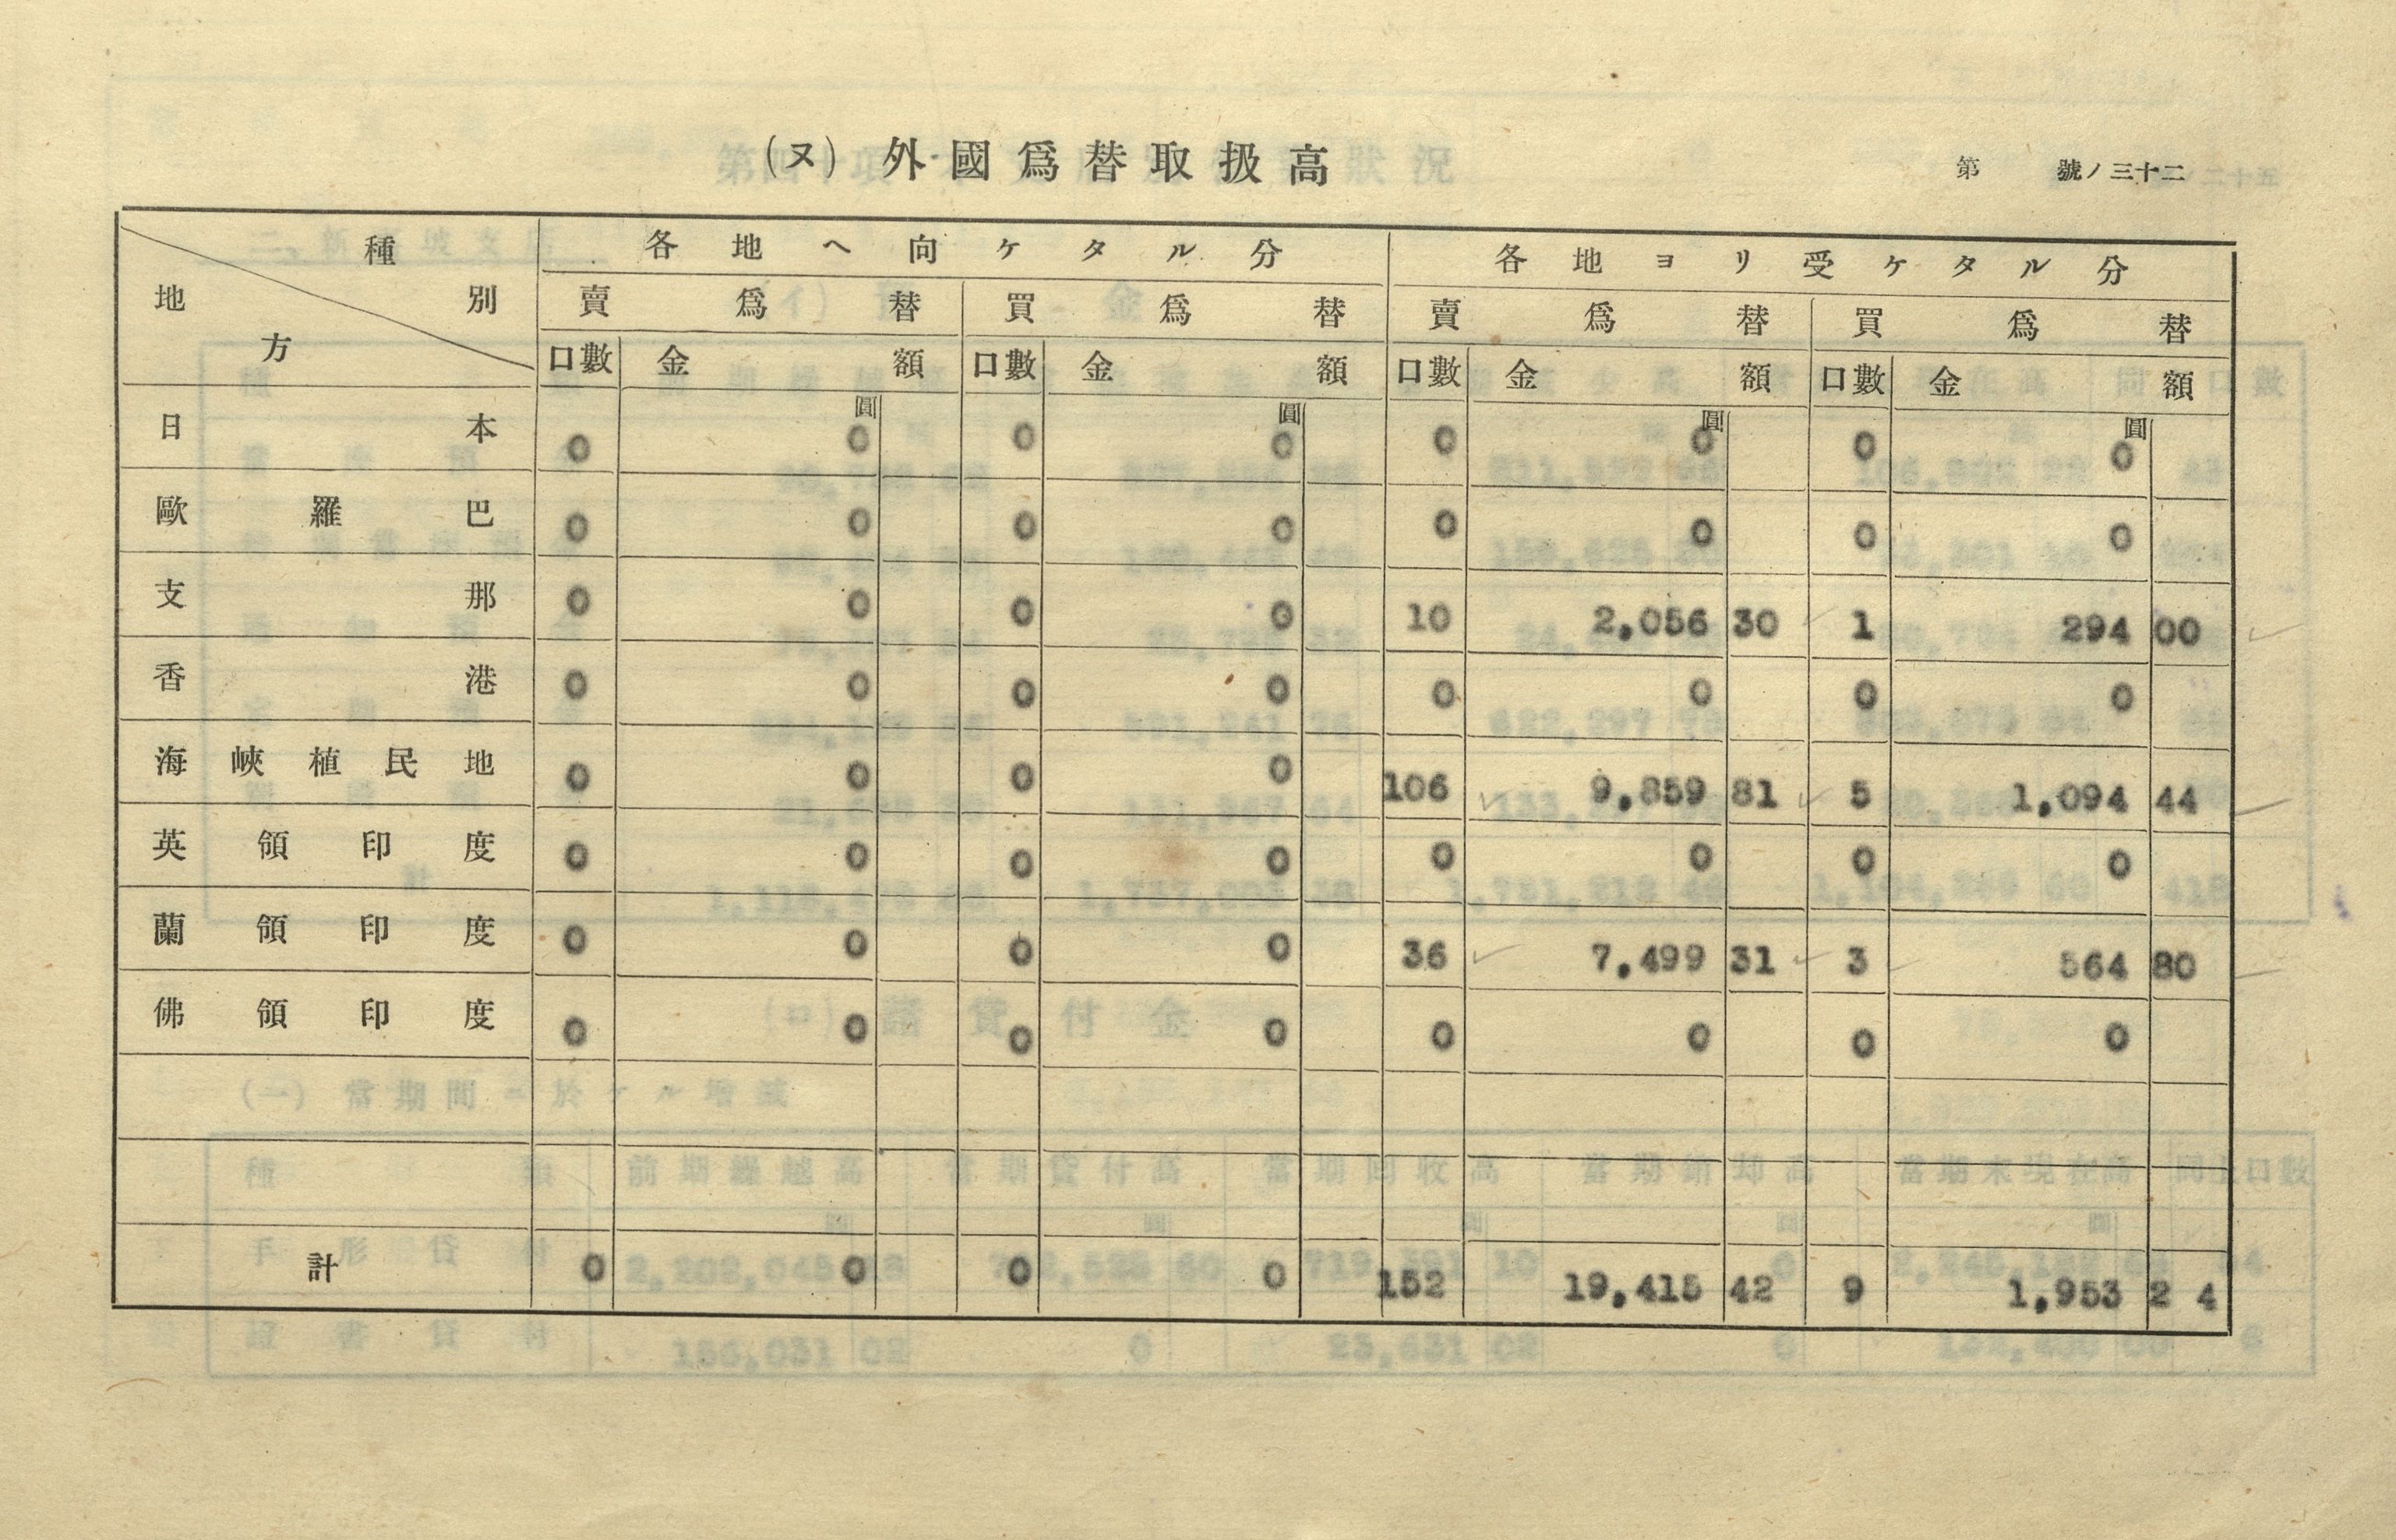 (ヌ) 外國爲替取扱高
第 號ノ三十二
種別 地方 各地ヘ向ケタル分 各地ヨリ受ケタル分
賣爲替 買爲替 賣爲替 買爲替
口數 金額 口數 金額 口數 金額 口數 金額
圓 圓 圓 圓
日本 0 0 0 0 0 0 0 0
歐羅巴 0 0 0 0 0 0 0 0
支那 0 0 0 0 10 2,056 30 1 294 00
香港 0 0 0 0 0 0 0 0
海峽植民地 0 0 0 0 106 9,859 81 5 1,094 44
英領印度 0 0 0 0 0 0 0 0
蘭領印度 0 0 0 0 36 7,499 31 3 564 80
佛領印度 0 0 0 0 0 0 0 0
計 0 0 0 0 152 19,415 42 9 1,953 2 4